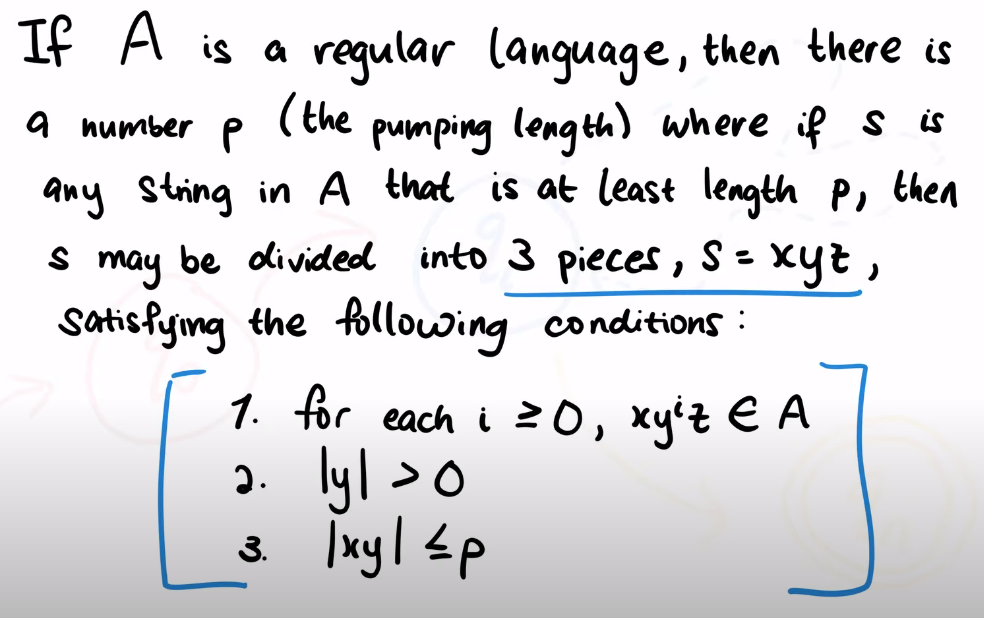 If A is a regular language, then there is
a number p (the pumping length) where if s is
any string in A that is at least length p, then
s may be divided into 3 pieces, S = xyz,
satisfying the following conditions:
1. for each i ≥ 0, xyⁱz ∈ A
2. |y| > 0
3. |xy| ≤ p